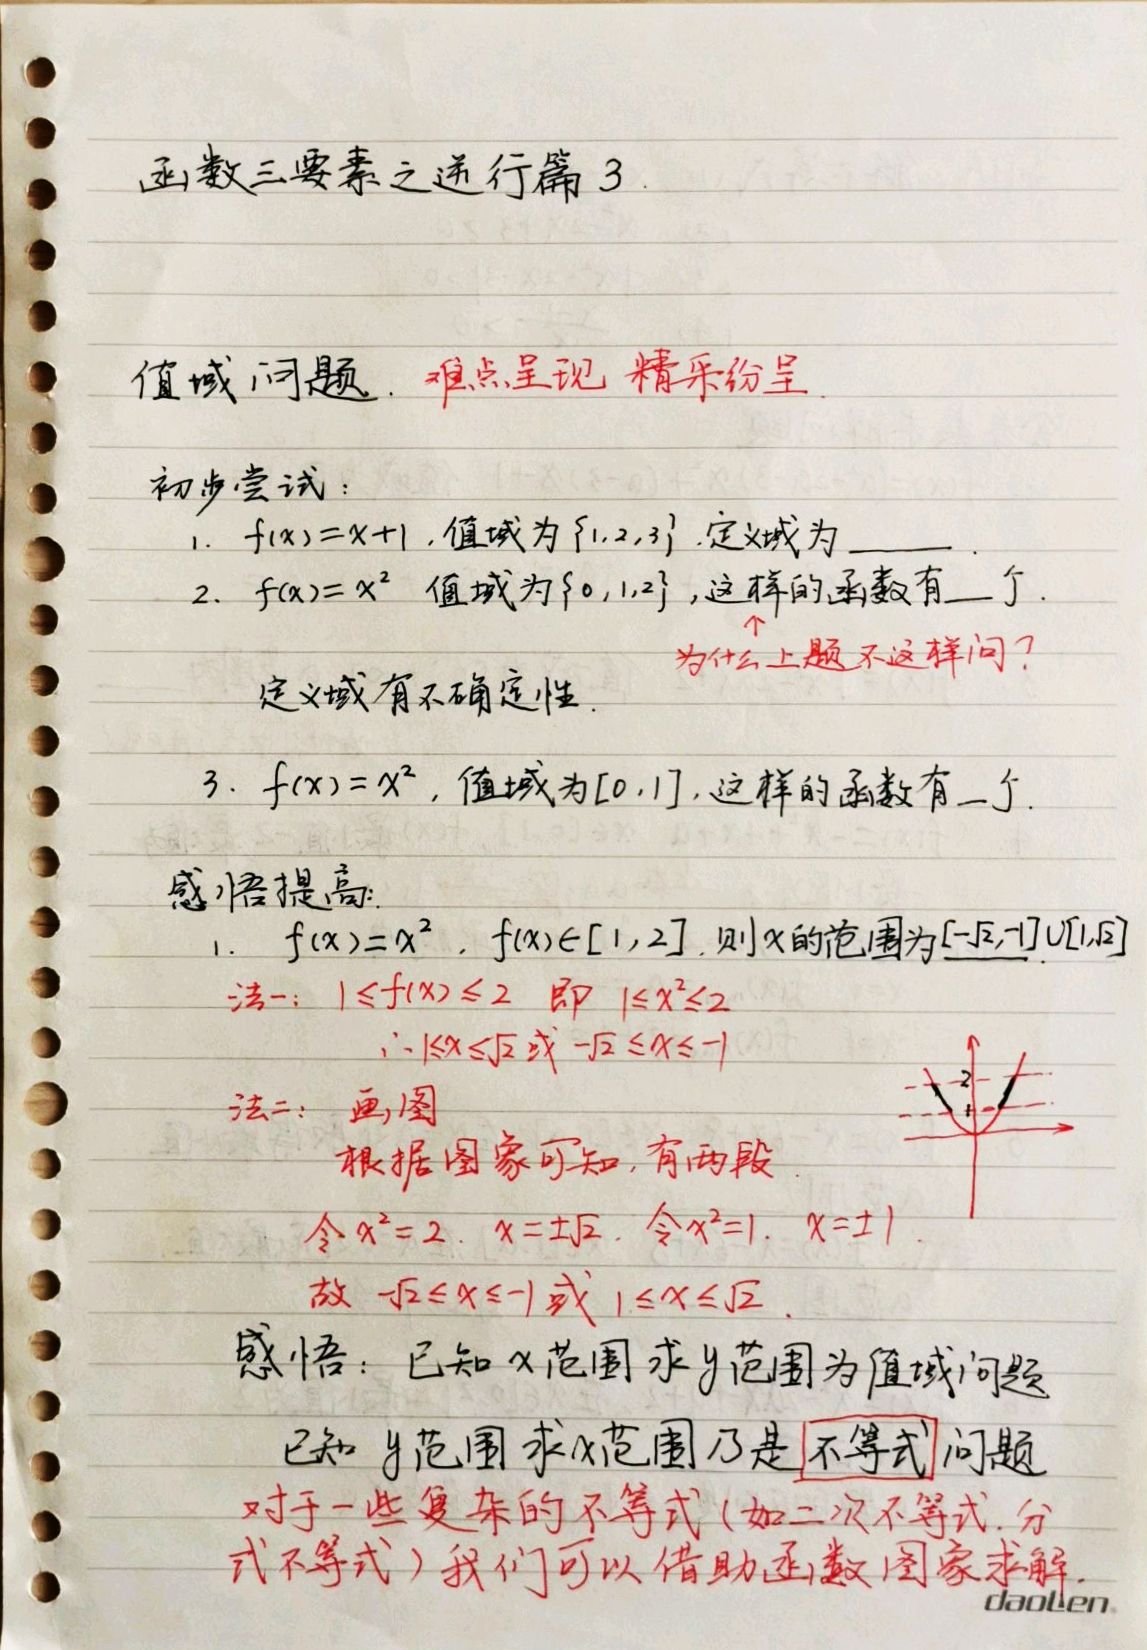 函数三要素之逆行篇3.
值域问题. 难点呈现 精采纷呈.
初步尝试:
1. f(x)=x+1,值域为{1,2,3}.定义域为____.
2. f(x)=x² 值域为{0,1,2},这样的函数有__个.
↑
为什么上题不这样问?
定义域有不确定性.
3. f(x)=x²,值域为[0,1],这样的函数有__个.
感悟提高:
1. f(x)=x². f(x)∈[1,2].则x的范围为[-√2,-1]∪[1,√2].
法一: 1≤f(x)≤2 即 1≤x²≤2
∴1≤x≤√2或 -√2≤x≤-1
法二: 画图
2
1
根据图象可知,有两段.
令x²=2. x=±√2. 令x²=1. x=±1.
故 -√2≤x≤-1或 1≤x≤√2.
感悟: 已知x范围求y范围为值域问题
已知y范围求x范围乃是不等式问题
对于一些复杂的不等式(如二次不等式.分
式不等式)我们可以借助函数图象求解.
daolen